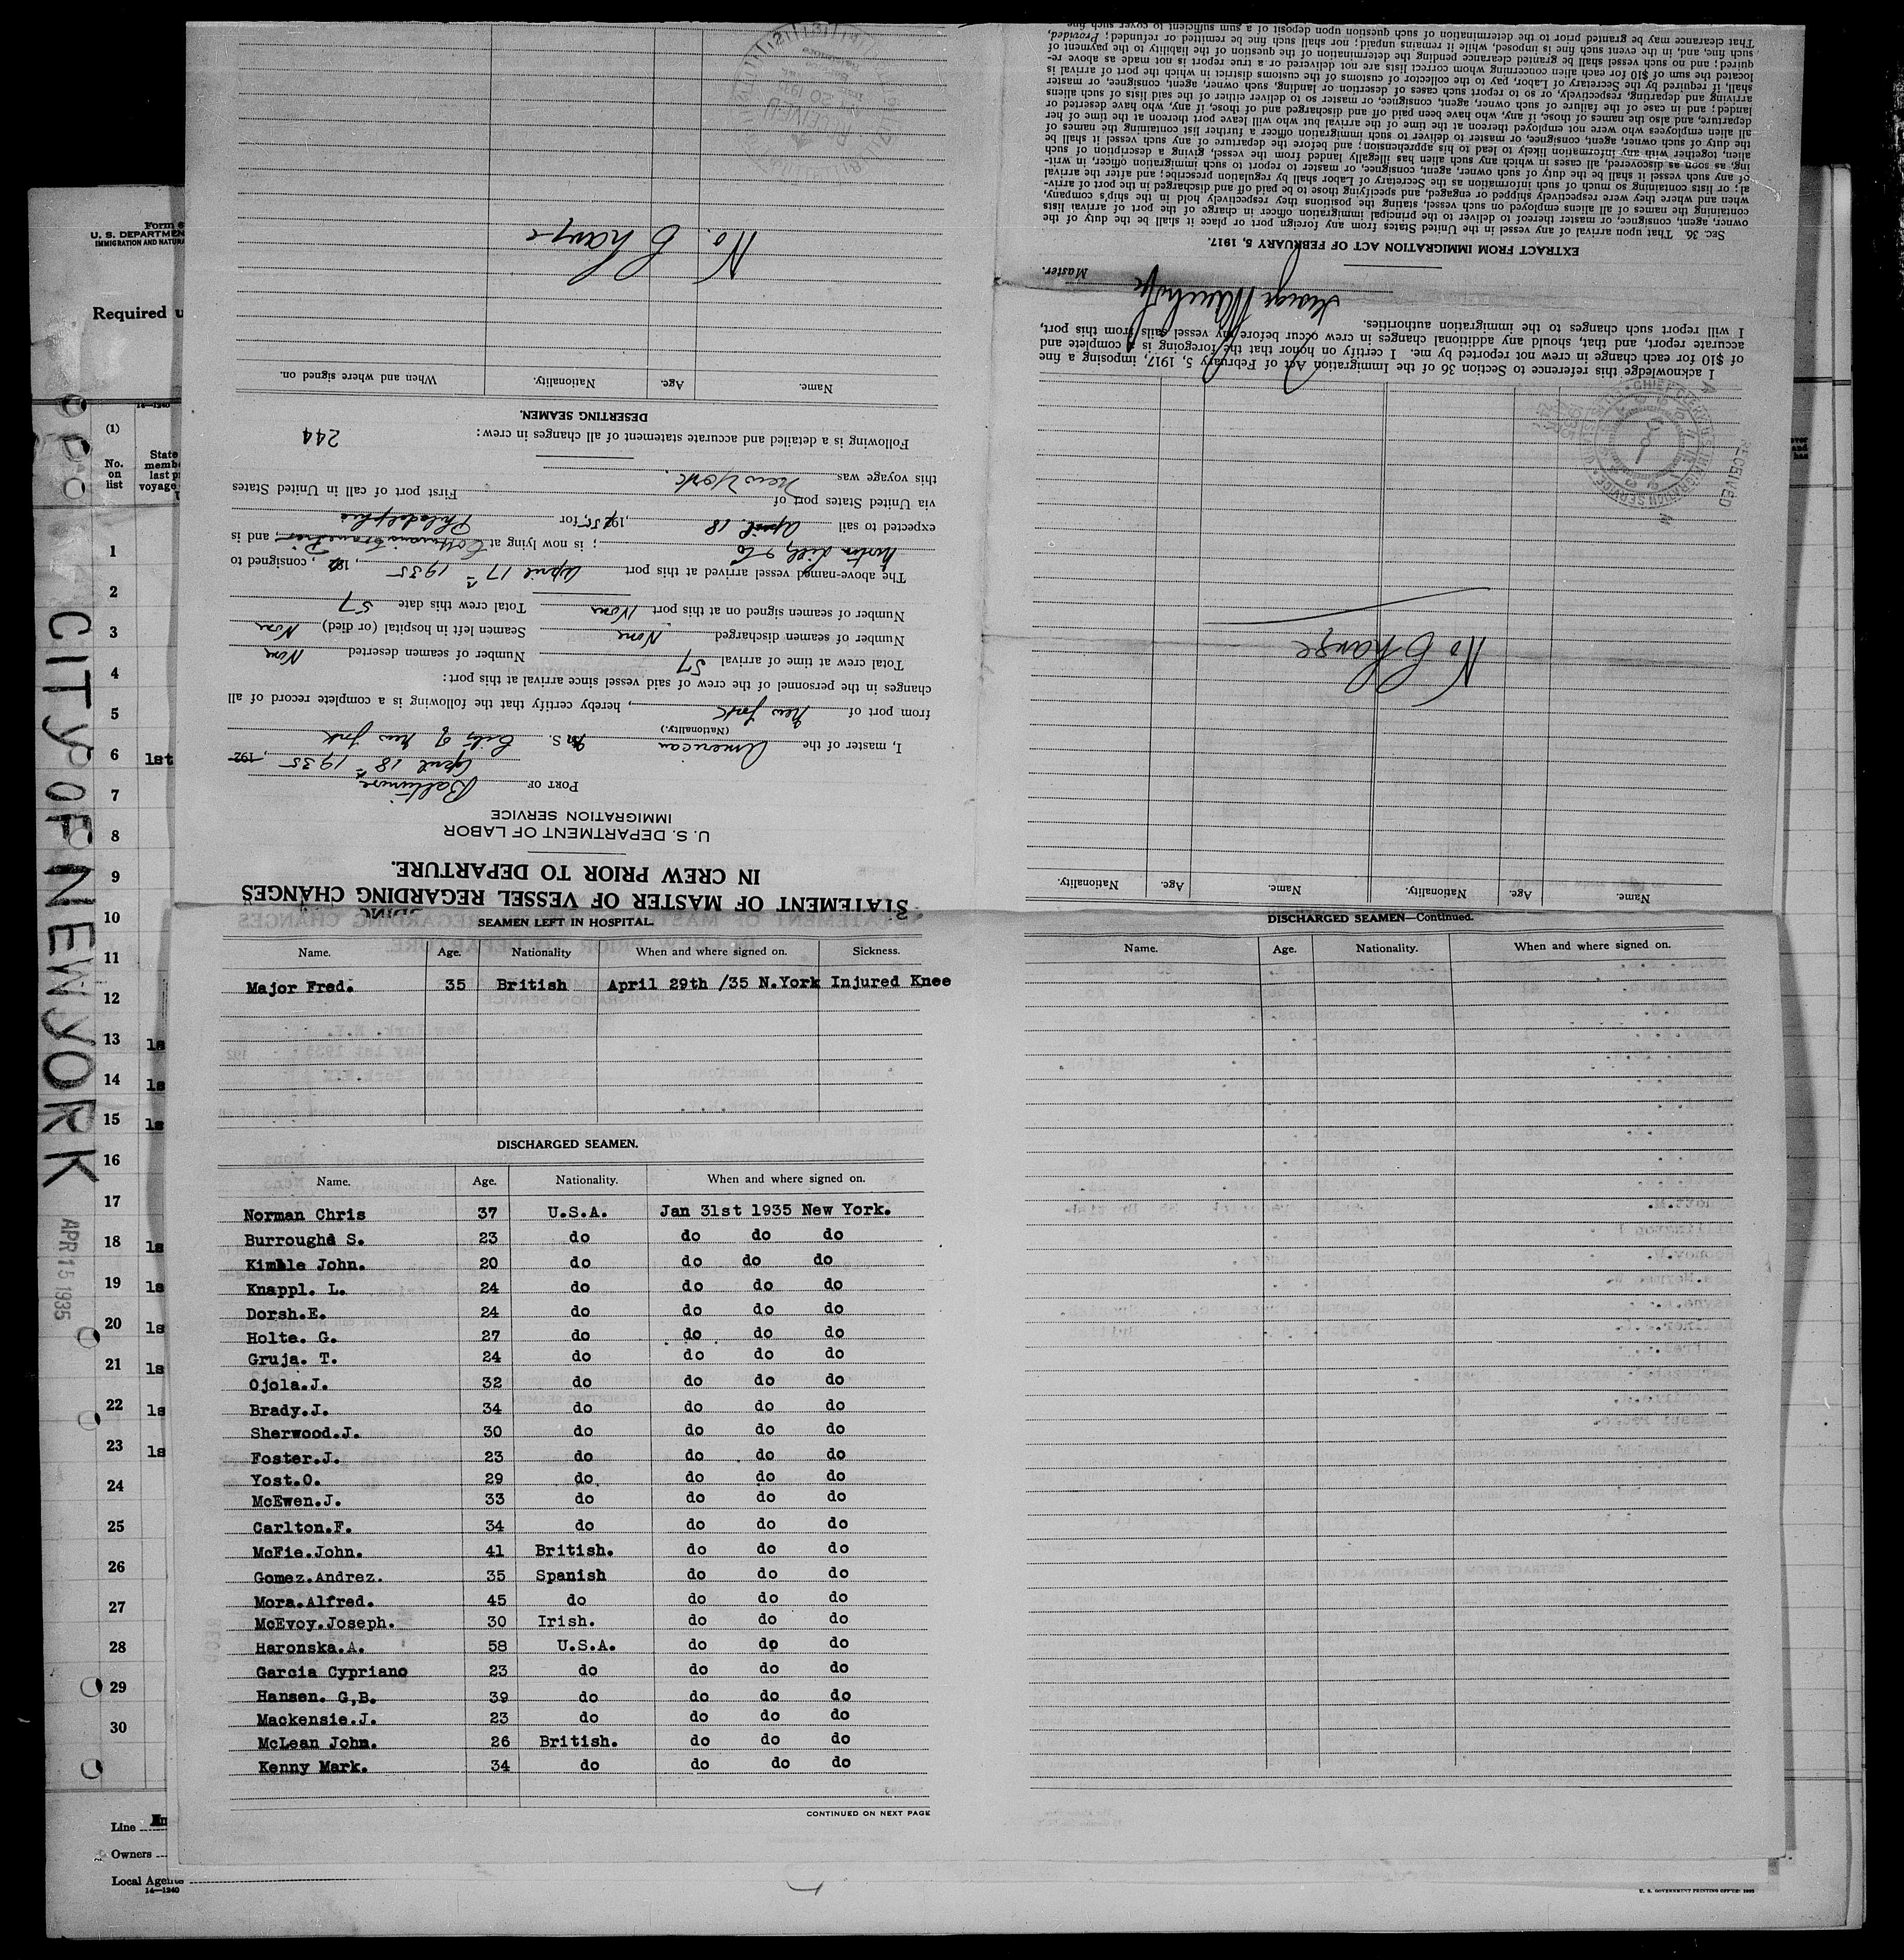 STATEMENT OF MASTER OF VESSEL REGARDING CHANGES
IN CREW PRIOR TO DEPARTURE.
U. S. DEPARTMENT OF LABOR
IMMIGRATION SERVICE
PORT OF Baltimore
April 18th 1935, 192
I, master of the American M. S. City of New York
(Nationality.)
from port of New York, hereby certify that the following is a complete record of all
changes in the personnel of the crew of said vessel since arrival at this port:
Total crew at time of arrival 57 Number of seamen deserted None
Number of seamen discharged None Seamen left in hospital (or died) None
Number of seamen signed on at this port None Total crew this date 57
The above-named vessel arrived at this port April 17th 1935, 192, consigned to
; is now lying at ; and is
expected to sail April 18, 1935, for Philadelphia
via United States port of First port of call in United States
this voyage was New York.
Following is a detailed and accurate statement of all changes in crew: 244
DESERTING SEAMEN.
Name. Age. Nationality. When and where signed on.
No. Change
RECEIVED
20 1935
Name. Age. Nationality. Name. Age. Nationality.
No Change
RECEIVED
I acknowledge this reference to Section 36 of the Immigration Act of February 5, 1917, imposing a fine
of $10 for each change in crew not reported by me. I certify on honor that the foregoing is a complete and
accurate report, and that, should any additional changes in crew occur before my vessel sails from this port,
I will report such changes to the immigration authorities.
George
Master.
EXTRACT FROM IMMIGRATION ACT OF FEBRUARY 5, 1917.
SEC. 36. That upon arrival of any vessel in the United States from any foreign port or place it shall be the duty of the
owner, agent, consignee, or master thereof to deliver to the principal immigration officer in charge of the port of arrival lists
containing the names of all aliens employed on such vessel, stating the positions they respectively hold in the ship's company,
when and where they were respectively shipped or engaged, and specifying those to be paid off and discharged in the port of arriv-
al; or lists containing so much of such information as the Secretary of Labor shall by regulation prescribe; and after the arrival
of any such vessel it shall be the duty of such owner, agent, consignee, or master to report to such immigration officer, in writ-
ing, as soon as discovered, all cases in which any such alien has illegally landed from the vessel, giving a description of such
alien, together with any information likely to lead to his apprehension; and before the departure of any such vessel it shall be
the duty of such owner, agent, consignee, or master to deliver to such immigration officer a further list containing the names of
all alien employees who were not employed thereon at the time of the arrival but who will leave port thereon at the time of her
departure, and also the names of those, if any, who have been paid off and discharged and of those, if any, who have deserted or
landed; and in case of the failure of such owner, agent, consignee, or master so to deliver either of the said lists of such aliens
arriving and departing, respectively, or so to report such cases of desertion or landing, such owner, agent, consignee, or master
shall, if required by the Secretary of Labor, pay to the collector of customs of the customs district in which the port of arrival is
located the sum of $10 for each alien concerning whom correct lists are not delivered or a true report is not made as above re-
quired; and no such vessel shall be granted clearance pending the determination of the question of the liability to the payment of
such fine, and, in the event such fine is imposed, while it remains unpaid; nor shall such fine be remitted or refunded; Provided,
That clearance may be granted prior to the determination of such question upon deposit of a sum sufficient to cover such fine
SEAMEN LEFT IN HOSPITAL.
Name. Age. Nationality When and where signed on. Sickness.
Major Fred. 35 British April 29th /35 N.York Injured Knee
DISCHARGED SEAMEN.
Name. Age. Nationality. When and where signed on.
Norman Chris 37 U.S.A. Jan 31st 1935 New York.
Burroughd S. 23 do do do do
Kimble John. 20 do do do do
Knappl. L. 24 do do do do
Dorsh.E. 24 do do do do
Holte. G. 27 do do do do
Gruja. T. 24 do do do do
Ojola.J. 32 do do do do
Brady.J. 34 do do do do
Sherwood.J. 30 do do do do
Foster.J. 23 do do do do
Yost.O. 29 do do do do
McEwen.J. 33 do do do do
Carlton.F. 34 do do do do
McFie.John. 41 British. do do do
Gomez.Andrez. 35 Spanish do do do
Mora.Alfred. 45 do do do do
McEvoy.Joseph. 30 Irish. do do do
Haronska.A. 58 U.S.A. do do do
Garcia Cypriano 23 do do do do
Hansen. G,B. 39 do do do do
Mackensie.J. 23 do do do do
McLean John. 26 British. do do do
Kenny Mark. 34 do do do do
CONTINUED ON NEXT PAGE
DISCHARGED SEAMEN—Continued.
Name. Age. Nationality. When and where signed on.
Form
U. S. DEPARTMEN
IMMIGRATION AND NATURA
Required u
14—1240
(1)
No. on list
State
memb
last p
voyage
1
2
3
4
5
6 1st
7
8
9
10
11
12
13 1s
14 1s
15 1s
16
17
18 1s
19 1s
20 1s
21 1s
22 1s
23 1s
24
25
26
27
28
29
30
Line
Owners
Local Agents
14—1240
U. S. GOVERNMENT PRINTING OFFICE:
CITY OF NEW YORK
APR 15 1935